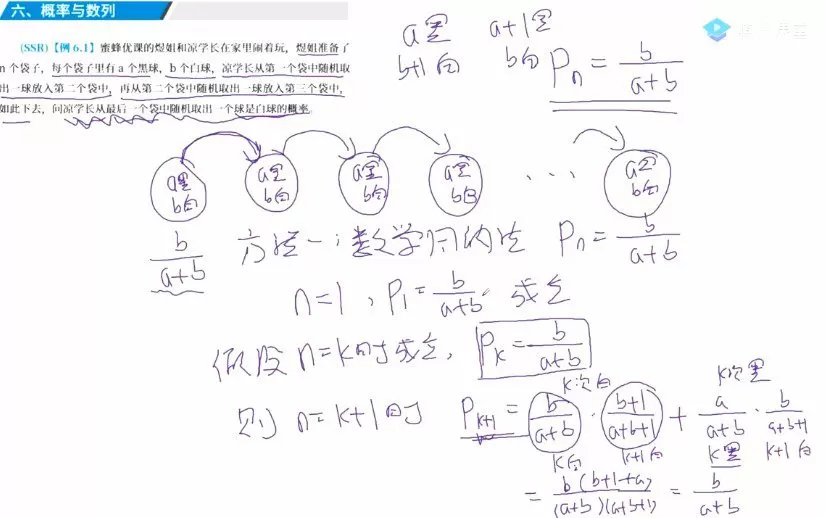 六、概率与数列
(SSR)【例 6.1】蜜蜂优课的煜姐和凉学长在家里闹着玩，煜姐准备了
n 个袋子，每个袋子里有 a 个黑球，b 个白球，凉学长从第一个袋中随机取
出一球放入第二个袋中，再从第二个袋中随机取出一球放入第三个袋中，
如此下去，问凉学长从最后一个袋中随机取出一个球是白球的概率.
a黑 a+1黑
b+1白 b白
Pn = b/(a+b)
a黑 a黑 a黑 a黑 ... a黑
b白 b白 b白 b白 b白
b/(a+b) 方法一：数学归纳法 Pn = b/(a+b)
n=1，P1 = b/(a+b) 成立
假设 n=k时成立，Pk = b/(a+b)
K次白 K次黑
则 n=k+1时 Pk+1 = b/(a+b) · (b+1)/(a+b+1) + a/(a+b) · b/(a+b+1)
K白 k+1白 k黑 k+1白
= b(b+1+a)/(a+b)(a+b+1) = b/(a+b)